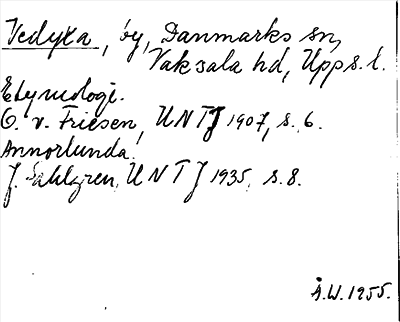 Vedyxa, by, Danmarks sn,
Vaksala hd, Upps. l.
Etymologi.
O. v. Friesen, UNTJ 1907, s. 6.
Annorlunda
J. Sahlgren, UNTJ 1935, s. 8.
Å.W. 1955.